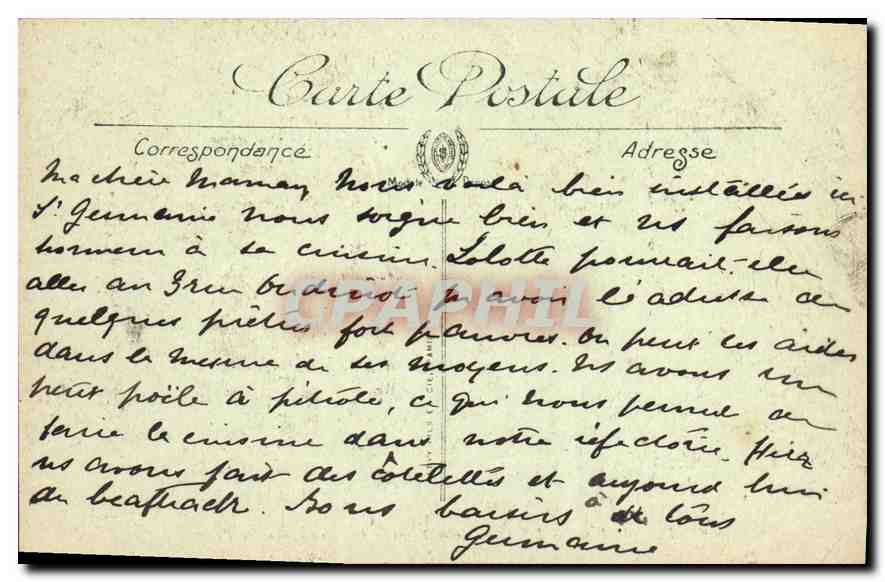 Carte Postale
Correspondance
Adresse
Ma chère Maman, Nous voilà bien installées ici
St Germaine nous soigne bien et ns faisons
honneur à sa cuisine. Lolotte pourrait-elle
aller au 3 rue pr avoir l'adresse de
quelques prêtres fort pauvres. On peut les aider
dans la mesure de ses moyens. Ns avons un
petit poële à pétrole, ce qui nous permet de
faire la cuisine dans notre réfectoire. Hier
ns avons fait des côtelettes et aujourd'hui
du beafteack. Bons baisers à tous
Germaine
CPAPHIL